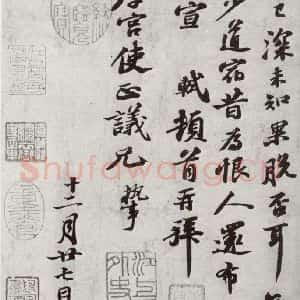 已深未知果脫否耳
少道宿昔為恨人還布
宣 軾頓首再拜
厚宮使正議兄執事
十二月廿七日
江上外史
Shufawang.cn